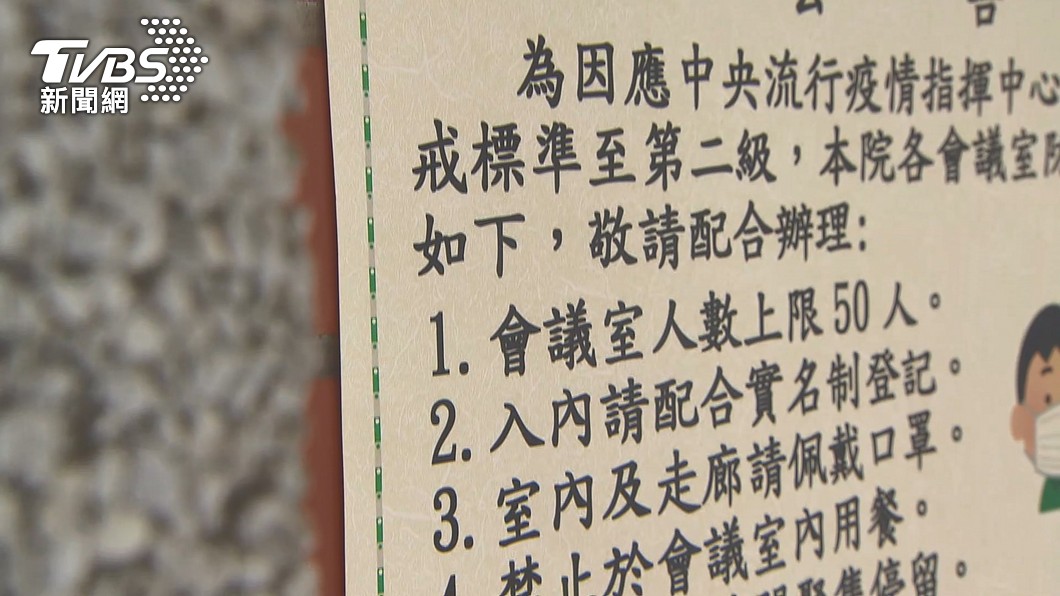 TVBS
新聞網
告
為因應中央流行疫情指揮中心
戒標準至第二級，本院各會議室
如下，敬請配合辦理:
1. 會議室人數上限50人。
2. 入內請配合實名制登記。
3. 室內及走廊請佩戴口罩。
4. 禁止於會議室內用餐。
聚集停留。